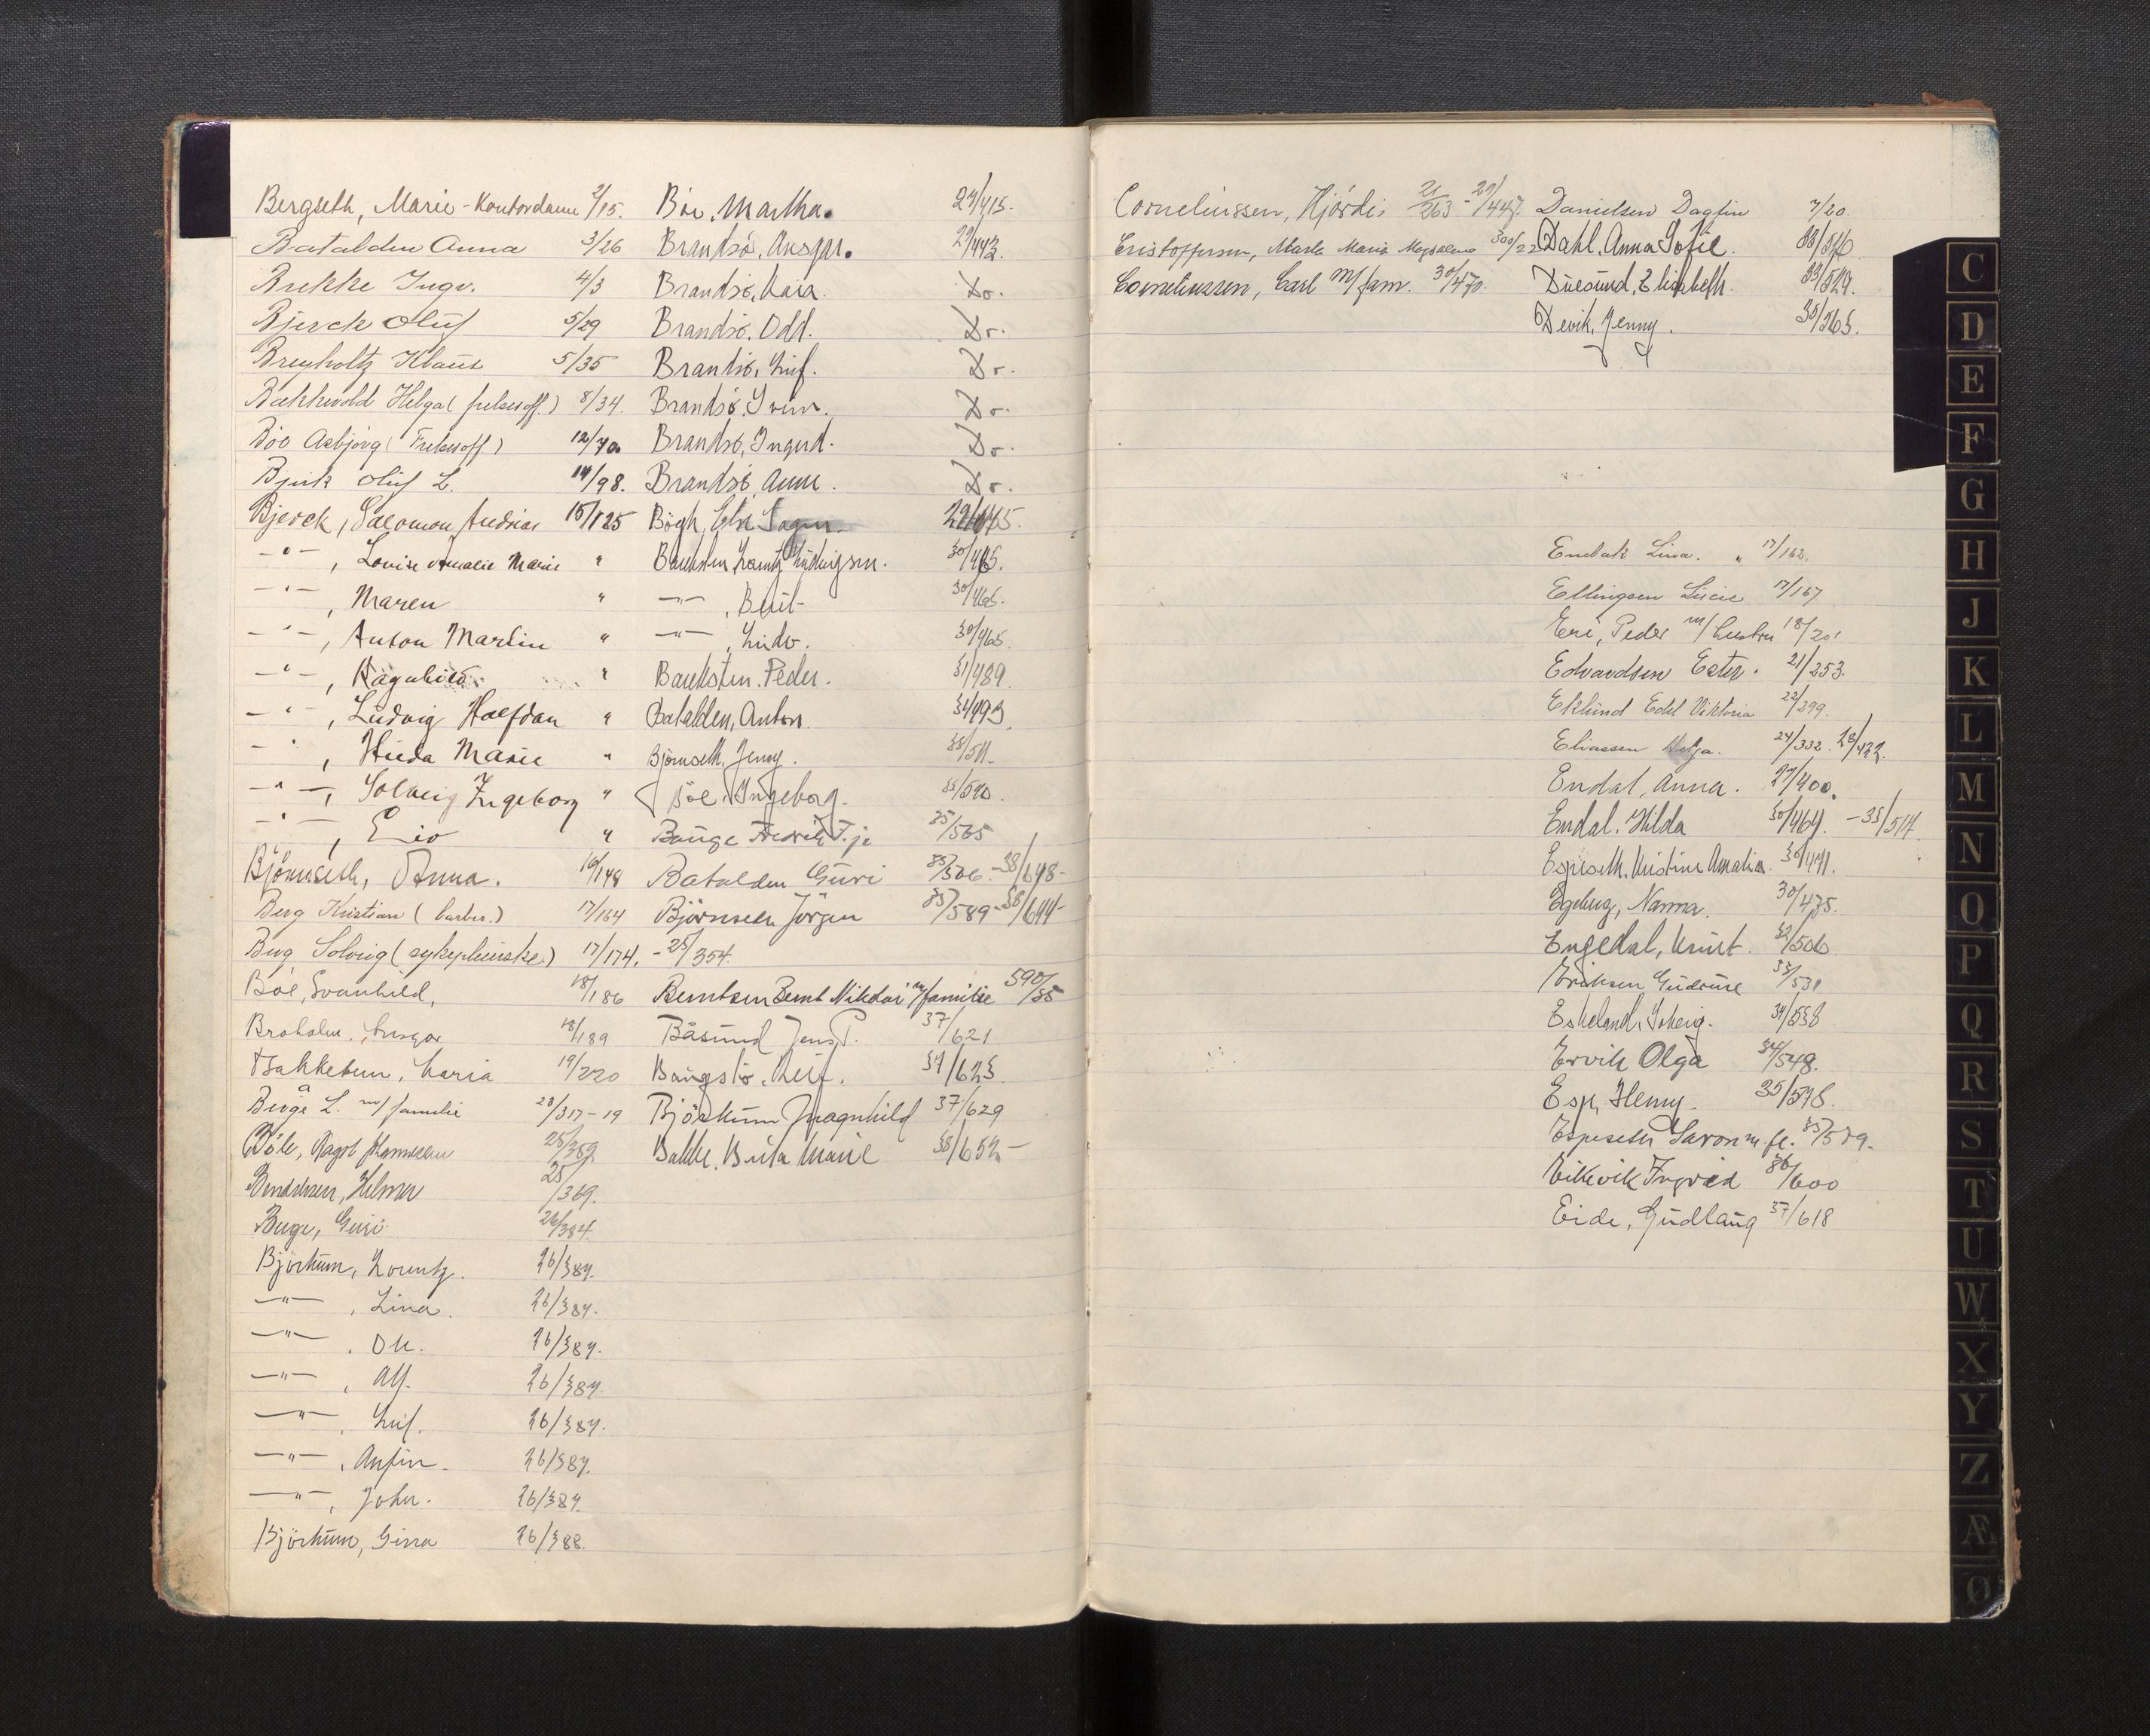 Bergseth, Marie - Kontordame 2/15.
Batalden Anna 3/26
Brekke Ingv. 4/3
Bjerck Oluf 5/29
Breyholtz Klaus 5/35
Bakkevold Helga (frelsesoff.) 8/34.
Böe Asbjörg (Frelsesoff) 12/70.
Bjerk Oluf L. 14/98.
Bjerck, Salomon Andreas 15/125
-"-, Louise Amalie Marie "
-"-, Maren "
-"-, Anton Martin "
-"-, Ragnhild "
-"-, Ludvig Halfdan "
-"-, Hilda Marie "
-"-, Solveig Ingeborg "
-"-, "
Björnseth, Anna. 16/148
Berg Kristian (barber.) 17/164
Berg Solveig (sykepleierske) 17/174. - 25/354.
Böe, Svanhild, 18/186
Broholm, 18/189
Bakkebun, Maria 19/220
Berge L. m/ familie 23/317-19
Böle, Dagot
Bendiksen, Helmer 25/369.
Berge, Guri 26/384.
Björkum, Lorentz. 26/387.
-"-, Lina. 26/387.
-"-, Ole. 26/387.
-"-, Alf. 26/387.
-"-, Leif. 26/387.
-"-, Anfin. 26/387.
-"-, John. 26/387.
Björkum, Gina 26/388.
Böe, Martha. 27/415.
Brandsö, Ansgar. 29/443.
Brandsö, Kaia. Do.
Brandsö, Odd. Do.
Brandsö, Leif. Do.
Brandsö, Do.
Brandsö, Ingrid. Do.
Brandsö, Anne. Do.
Bögh, Else
Bauksten, Lorentz Ludvigsen. 30/465.
-"-, Berit 30/465.
-"-, Ludv. 30/465.
Bauksten, Peder. 31/489.
Batalden, Anton. 31/493
Björnseth, Jenny. 33/511.
Böe, Ingeborg.
Bauge Fredrik T.je 35/565
Batalden Guri 35/586. - 38/648-
Björnsen Jörgen 35/589 - 38/644-
Berntsen Bernt Nikolai m/familie 590/35
Båsund Jens P. 37/621
Baugstö, Leif. 37/623.
Björkum Magnhild 37/629
Bakke, Brita Marie 38/652-
Corneliussen, Hjördis 21/263 - 29/447.
Cristoffersen, Marta Maria Magdalena 300/22
Corneliussen, Carl m/ fam. 30/470.
Danielsen Dagfin 7/20.
Dahl, Anna Sofie.
Duesund, Elisabeth. 33/529.
Devik, Jenny. 35/563.
Enebak Lina. " 17/163.
Ellingsen Lucie 17/167
Eri, Peder m/ hustru 18/201
Edvardsen Ester. 21/253.
Eklund Edel Viktoria 22/299.
Eliassen Helga. 24/332. 28/422.
Endal, Anna. 27/400.
Endal, Hilda 30/464. - 33/514.
Espeseth, Kristine Amalia. 30/471.
Egeberg, Nanna. 30/475.
Engedal, Knut. 32/506.
Eriksen Gudrune 33/531
Eskeland, Solveig. 34/538
Ervik Olga 34/548.
Esp, Henny. 35/578.
Espeseth
Eikevik Ingrid 36/600
Eide, Gudlaug 37/618
C
D
E
F
G
H
J
K
L
M
N
O
P
Q
R
S
T
U
W
X
Y
Z
Æ
Ø